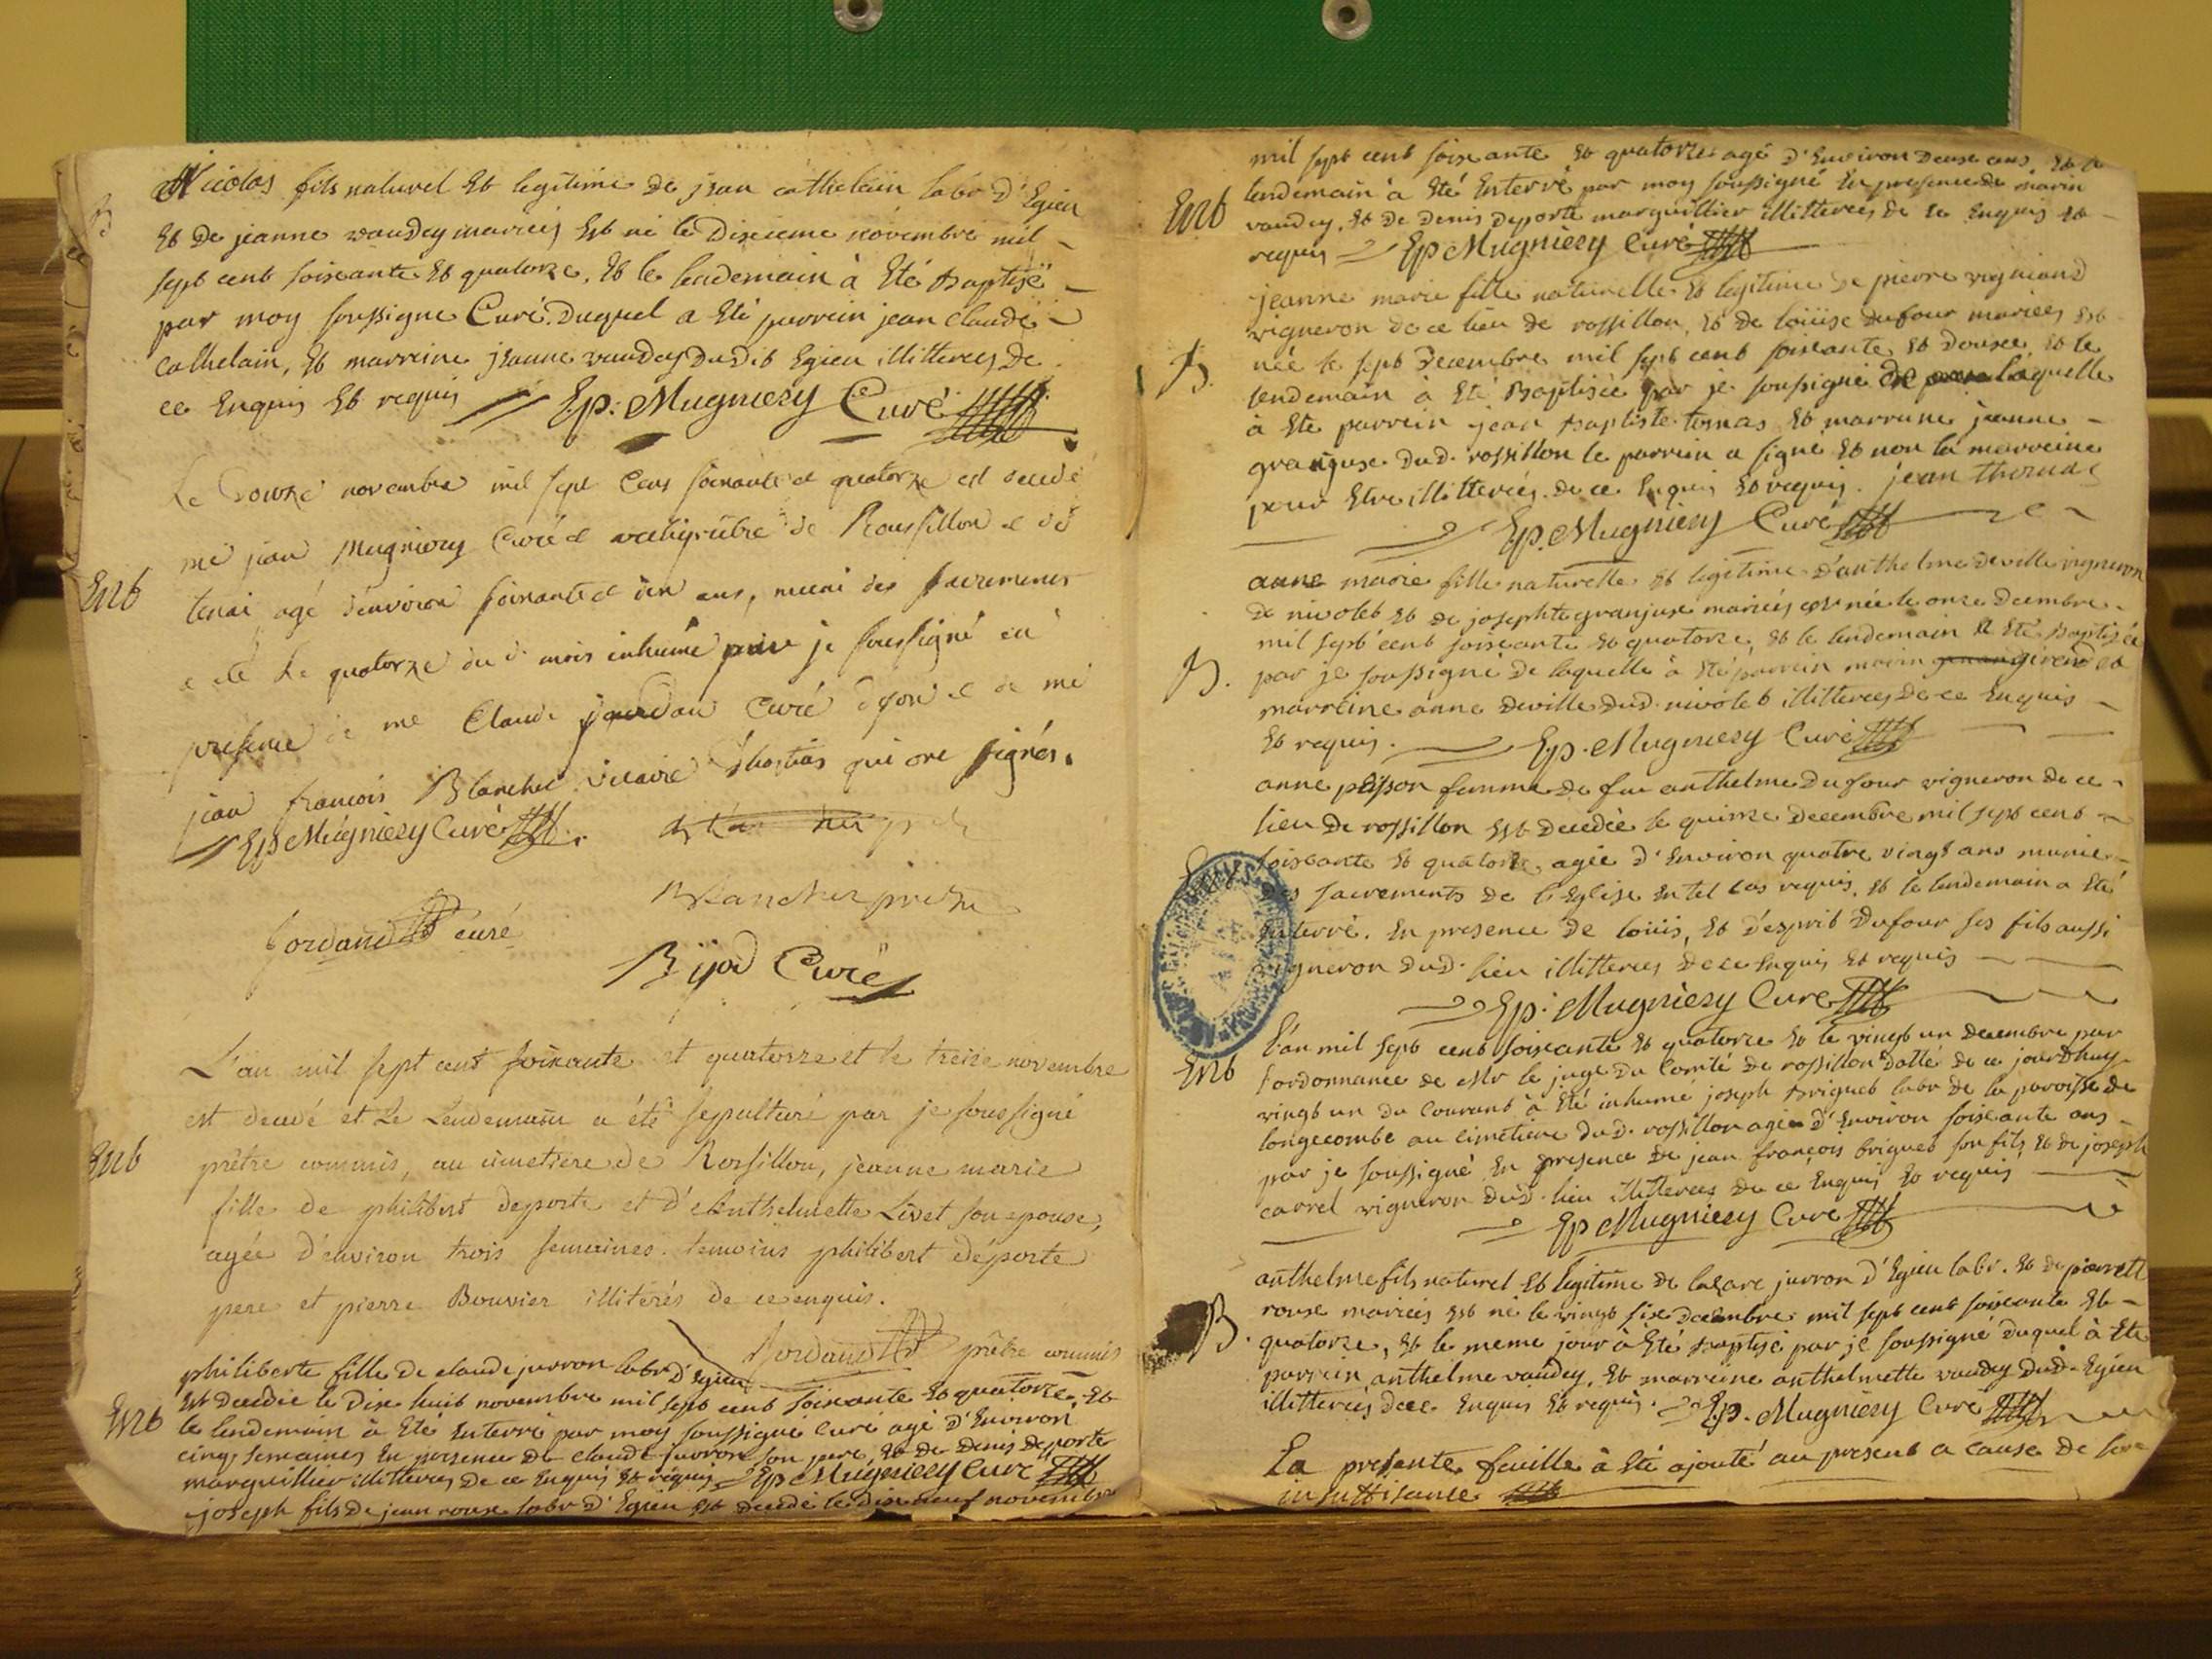 B
Nicolas fils naturel et legitime de jean cathelain labr d'Egieu
et de jeanne vaudey mariés est né le dixieme novembre mil
sept cent soixante et quatorze, et le lendemain à été baptisé
par moy soussigne Curé. duquel a été parrein jean claude
Cathelain, et marreine jeanne vaudey dudit Egieu illitterés de
ce Enquis et requis Ep: Mugniery Curé
Ent
Le Douze novembre mil sept Cens soixante et quatorze est decedé
me jean Mugniery Curé et archiprêtre de Roussillon et de
tenai agé d'environ soixante et dix ans, muni des sacremens
a été le quatorze du d. mois inhumé par je soussigné en
presence de me Claude jourdan Curé et de me
jean francois Blanchet vicaire d'hostias qui ont signés.
Ep Mugniery Curé
Blanchet prêtre
Jordand curé
Bijod Curé
Ent
L'an mil sept cent soixante et quatorze et le treize novembre
est decedé et le Lendemain a été sepulturé par je soussigné
prêtre commis, au cimetiere de Rossillon, jeanne marie
fille de philibert deporte et d'Anthelmette Livet son epouse,
agée d'environ trois semaines. temoins philibert déporte
pere et pierre Bouvier illiterés de ce enquis.
Jordand prêtre commis
Ent
philiberte fille de claude juvron labr d'Egieu
est decedée le dix huit novembre mil sept cent soixante et quatorze, et
le lendemain à été Enterré par moy soussigné Curé agé d'Environ
cinq semaines En presence de claude juvron son pere, et de denis deporte
marguillier illitteres de ce Enquis et requis Ep Mugniery Curé
joseph fils de jean roux labr d'Egieu est decedé le dix neuf novembre
mil sept cent soixante et quatorze agé d'Environ deux ans, et le
Ent
lendemain à été Enterré par moy soussigné En presence de marin
vaudey, et de denis deporte marguillier illitterés de ce Enquis et
requis Ep Mugniery Curé
B.
jeanne marie fille naturelle et legitime de pierre vigniand
vigneron de ce lieu de rossillon, et de loüise dufour mariés est
née le sept decembre mil sept cent soixante et douze, et le
lendemain à été Baptisée par je soussigné laquelle
à été parrein jean baptiste tomas et marreine jeanne
granjuse dud. rossillon le parrein a signé et non la marreine
pour Etre illitterés de ce Enquis et requis. jean thomas
Ep. Mugniery Curé
B.
anne marie fille naturelle et legitime d'anthelme deville vigneron
de nivolet et de josephte granjuse mariés est née le onze decembre
mil sept cent soixante et quatorze, et le lendemain à été baptisée
par je soussigné de laquelle à été parrein marin girend et
marreine anne deville dud. nivolet illitterés de ce Enquis
et requis. Ep. Mugniery Curé
anne femme de feu anthelme dufour vigneron de ce
lieu de rossillon est decedée le quinze decembre mil sept cent
soixante et quatorze, agée d'Environ quatre vingt ans munie
des sacrements de l'Eglise En tel cas requis, et le lendemain a été
Enterré. En presence de loüis, et d'esprit dufour ses fils aussi
vigneron dud. lieu illitteres de ce Enquis et requis
Ep. Mugniery Curé
Ent
L'an mil sept cent soixante et quatorze et le vingt un decembre par
l'ordonnance de Mr le juge du Comté de rossillon datté de ce jourdhuy
vingt un du Courant à été inhumé joseph briquet labr de la paroisse de
longecombe au cimetiere dud. rossillon agé d'Environ soixante ans
par je soussigné En presence de jean françois briquet son fils, et de joseph
carrel vigneron dud. lieu illitteres de ce Enquis et requis
Ep Mugniery Curé
B.
anthelme fils naturel et legitime de lazare juvron d'Egieu labr. et de pierrette
rouse mariés est né le vingt six decembre mil sept cent soixante et
quatorze, et le meme jour à été baptisé par je soussigné duquel à été
parrein anthelme vaudey, et marreine anthelmette vaudey dud. Egieu
illitterés de ce Enquis et requis. Ep. Mugniery Curé
La presente feuille à été ajouté au present a cause de son
insuffisance